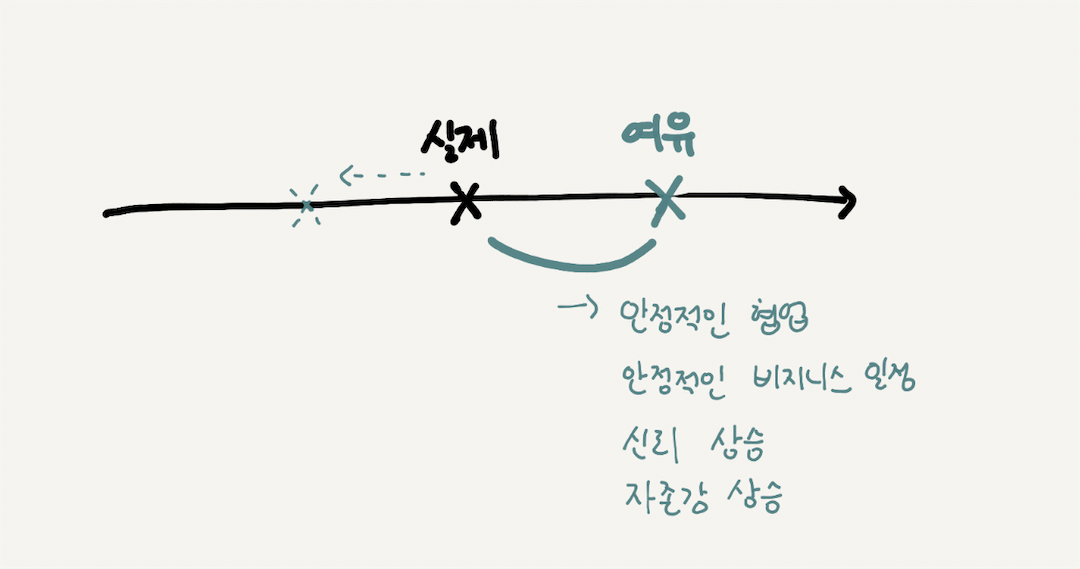 실제
여유
안정적인 협업
안정적인 비지니스 일정
신뢰 상승
자존감 상승